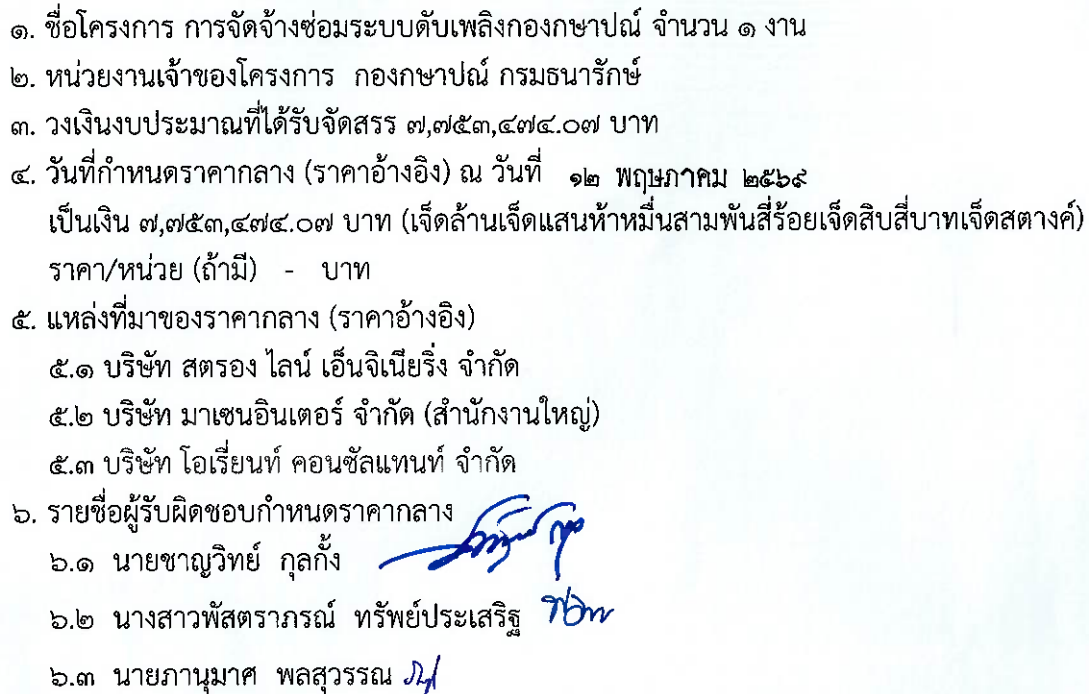 ๑. ชื่อโครงการ การจัดจ้างซ่อมระบบดับเพลิงกองกษาปณ์ จำนวน ๑ งาน
๒. หน่วยงานเจ้าของโครงการ กองกษาปณ์ กรมธนารักษ์
๓. วงเงินงบประมาณที่ได้รับจัดสรร ๗,๗๕๓,๔๗๔.๐๗ บาท
๔. วันที่กำหนดราคากลาง (ราคาอ้างอิง) ณ วันที่ ๑๒ พฤษภาคม ๒๕๖๙
เป็นเงิน ๗,๗๕๓,๔๗๔.๐๗ บาท (เจ็ดล้านเจ็ดแสนห้าหมื่นสามพันสี่ร้อยเจ็ดสิบสี่บาทเจ็ดสตางค์)
ราคา/หน่วย (ถ้ามี) - บาท
๕. แหล่งที่มาของราคากลาง (ราคาอ้างอิง)
๕.๑ บริษัท สตรอง ไลน์ เอ็นจิเนียริ่ง จำกัด
๕.๒ บริษัท มาเซนอินเตอร์ จำกัด (สำนักงานใหญ่)
๕.๓ บริษัท โอเรี่ยนท์ คอนซัลแทนท์ จำกัด
๖. รายชื่อผู้รับผิดชอบกำหนดราคากลาง
๖.๑ นายชาญวิทย์ กุลกั้ง
๖.๒ นางสาวพัสตราภรณ์ ทรัพย์ประเสริฐ
๖.๓ นายภานุมาศ พลสุวรรณ